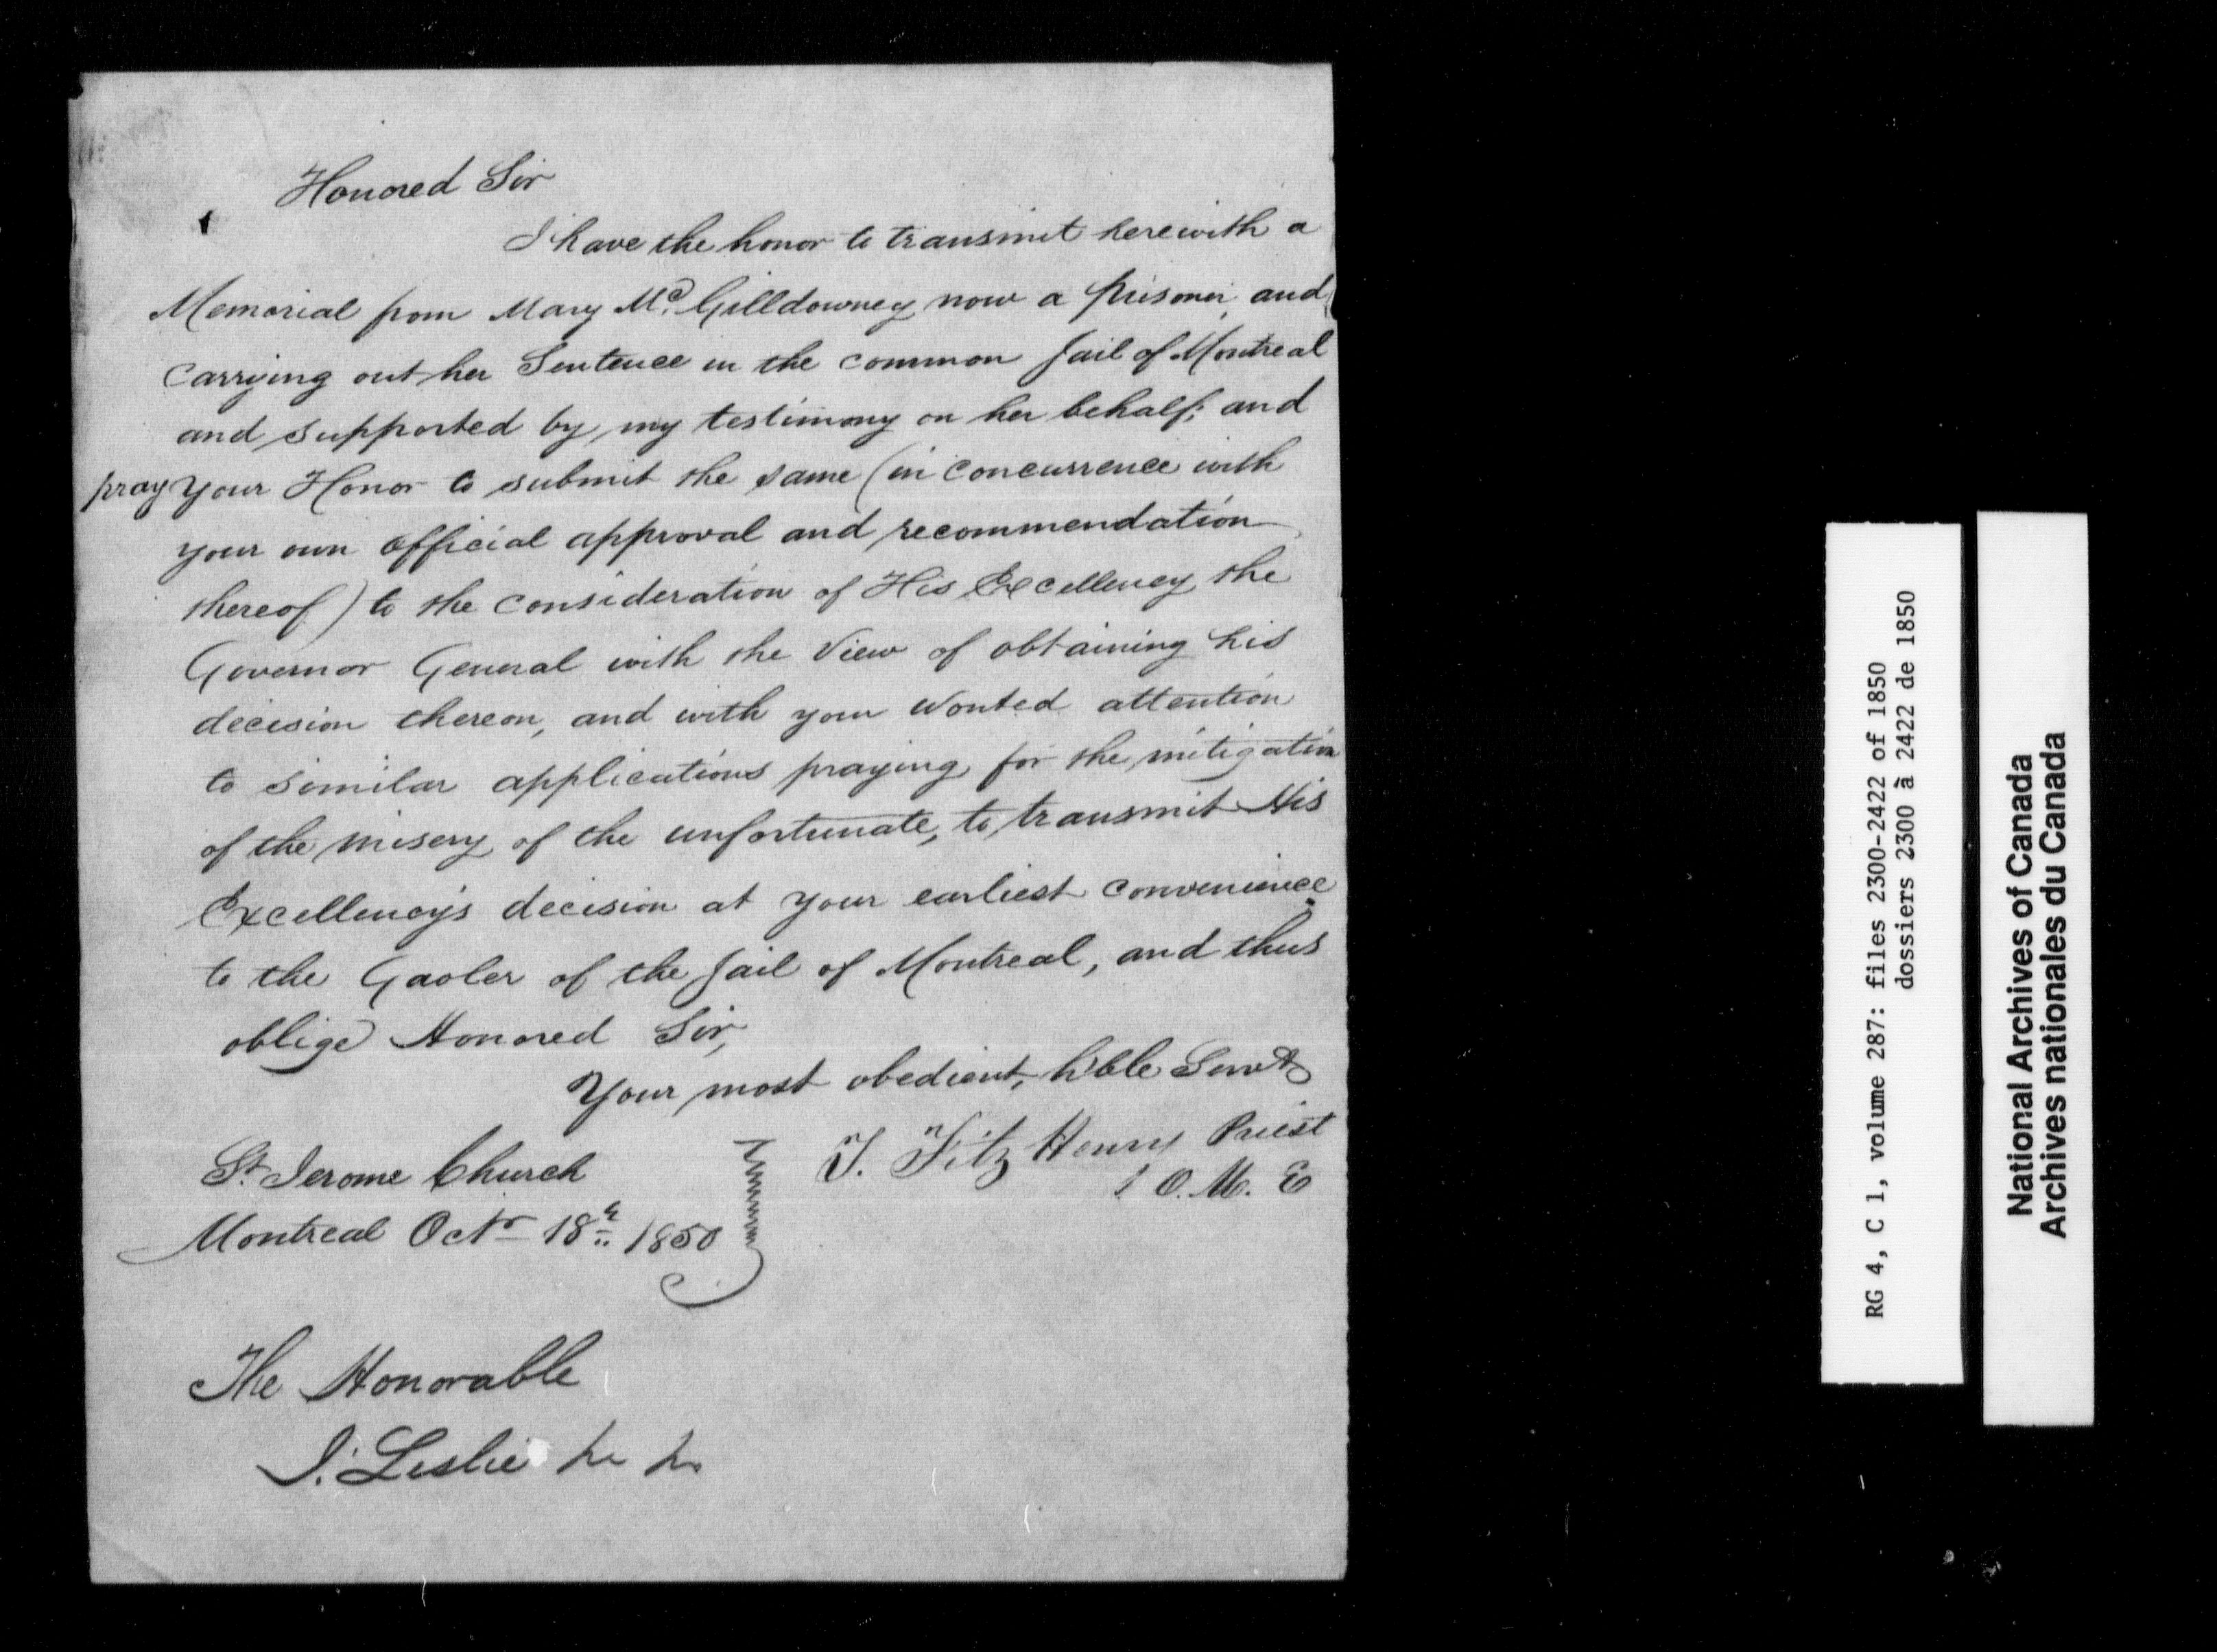 Honored Sir
I have the honor to transmit herewith a
Memorial from Mary Mc. Gilldowney now a prisoner, and
carrying out her Sentence in the common Jail of Montreal
and supported by my testimony on her behalf; and
pray your Honor to submit the same (in concurrence with
your own official approval and recommendation
thereof) to the consideration of His Excellency the
Governor General with the view of obtaining his
decision thereon, and with your wonted attention
to similar applications praying for the mitigation
of the misery of the unfortunate, to transmit His
Excellency's decision at your earliest convenience
to the Gaoler of the Jail of Montreal, and thus
oblige Honored Sir,
Your most obedient, hble Servt
J. Fitz Henry Priest
O. M. E
St. Jerome Church
Montreal Octr 18th 1850
The Honorable
J. Leslie
RG 4, C 1, volume 287: files 2300-2422 of 1850
dossiers 2300 à 2422 de 1850
National Archives of Canada
Archives nationales du Canada